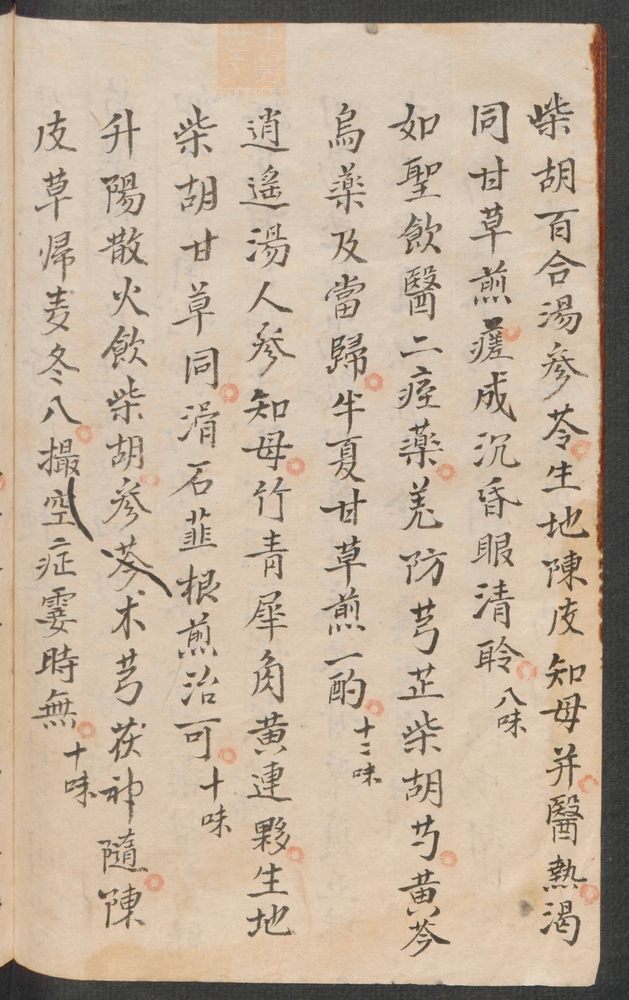 柴胡百合湯參苓生地陳皮知母并醫熱渴
同甘草煎瘥成沉昏眼清聆八味
如聖飲醫二痙藥羌防芎芷柴胡芍黃芩
烏藥及當歸半夏甘草煎一酌十二味
逍遙湯人參知母竹青犀角黃連夥生地
柴胡甘草同滑石韮根煎治可十味
升陽散火飲柴胡參芩朮芎茯神隨陳
皮草帰麦冬八撮空症霎時無十味